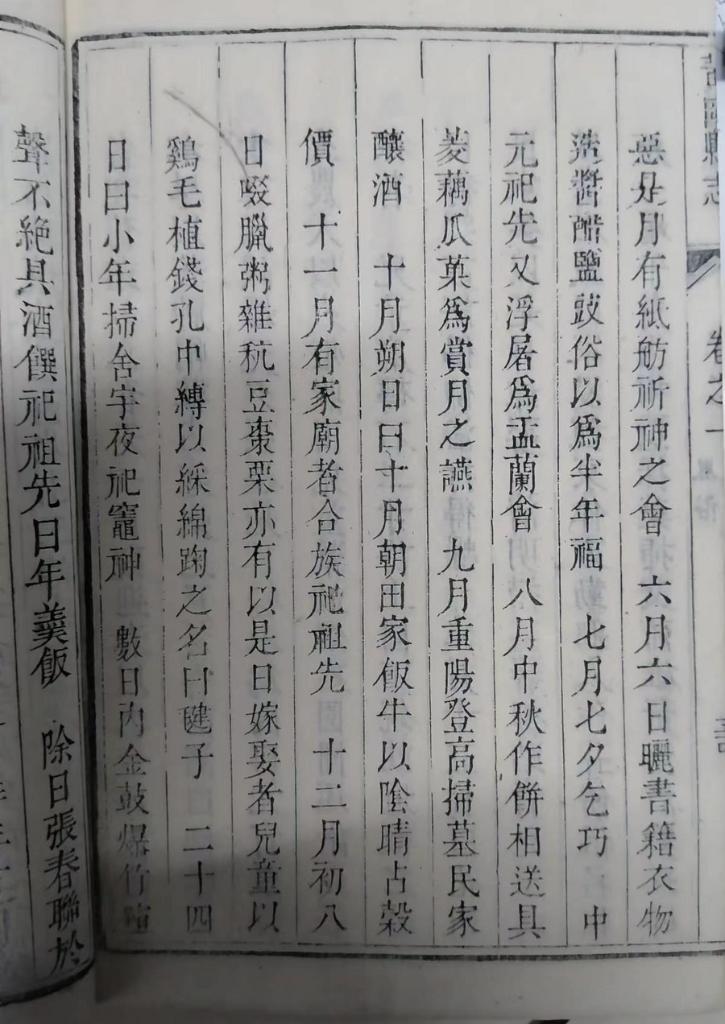 縣志
卷之一
惡是月有紙舫祈神之會　六月六日曬書籍衣物
造醬醋鹽豉俗以為半年福　七月七夕乞巧　中
元祀先又浮屠為盂蘭會　八月中秋作餅相送具
菱藕瓜菓為賞月之讌　九月重陽登高掃墓民家
釀酒　十月朔日曰十月朝田家飯牛以陰晴占穀
價　十一月有家廟者合族祀祖先　十二月初八
日啜臘粥雜秔豆棗栗亦有以是日嫁娶者兒童以
鷄毛植錢孔中縛以綵綿踘之名曰毽子　二十四
日曰小年掃舍宇夜祀竈神　數日內金鼓爆竹
聲不絕具酒饌祀祖先日年羹飯　除日張春聯於